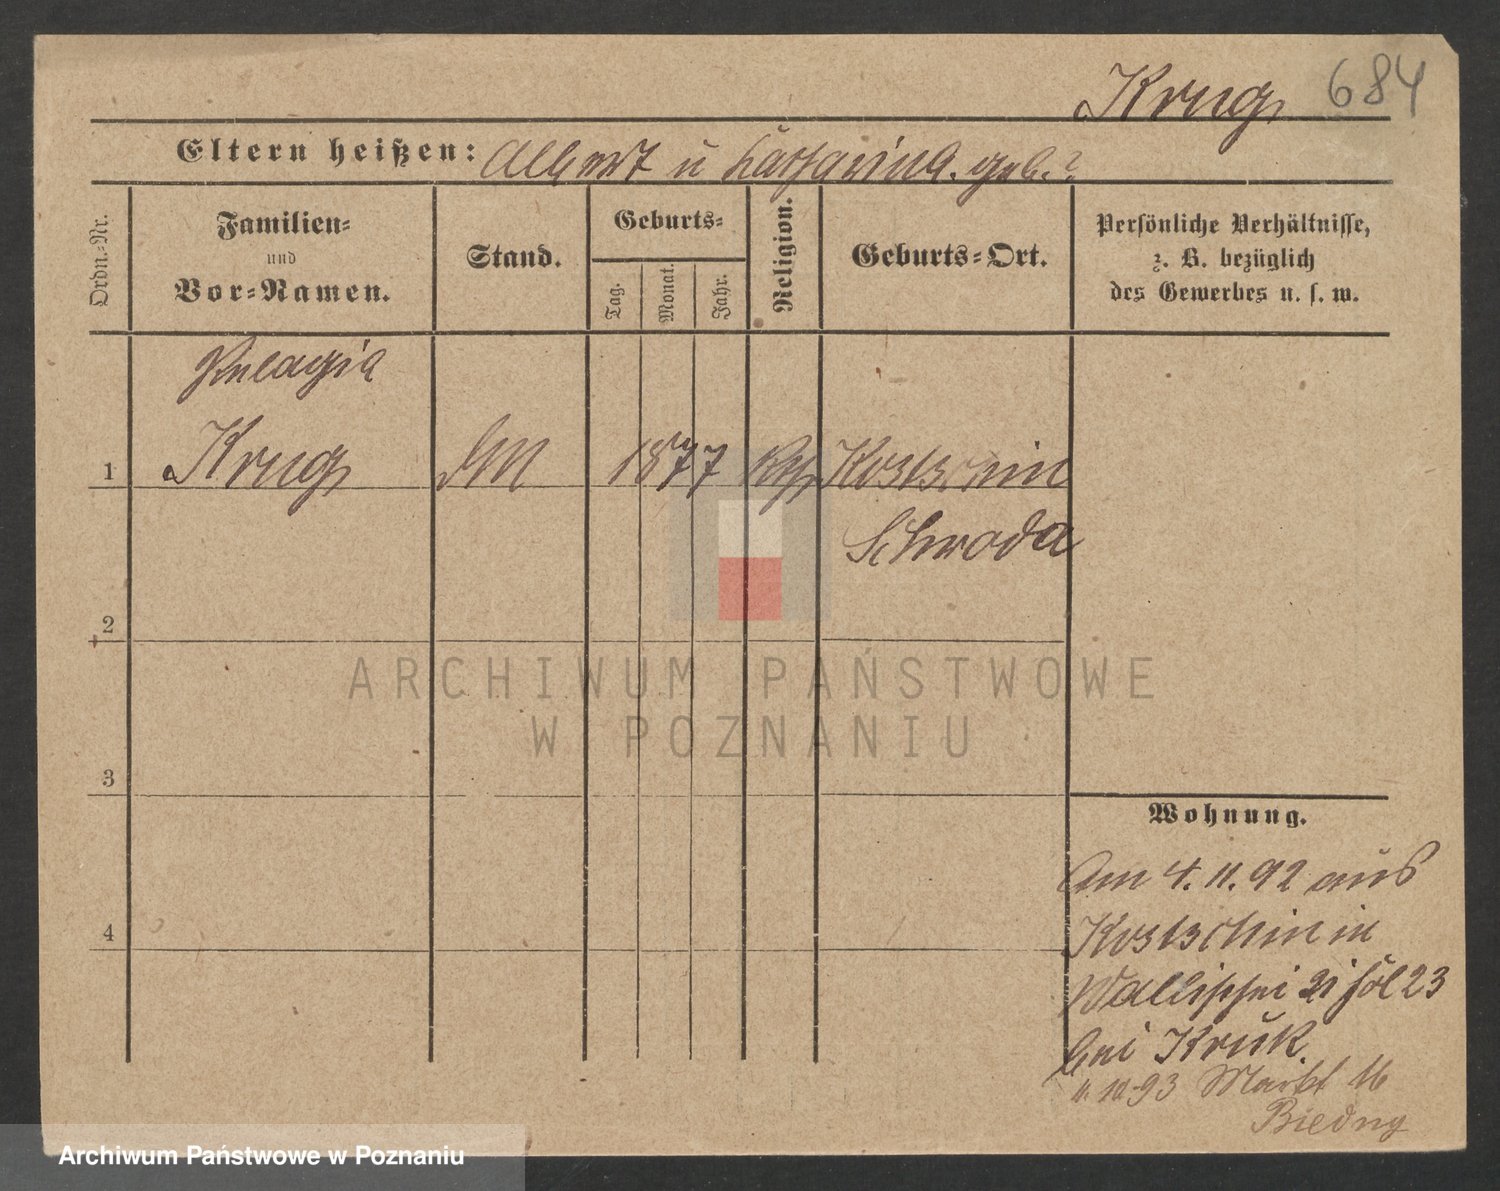 Krug 684
Eltern heißen: Albert u Katharina. geb. ?
Ordn.-Nr.
Familien-
und
Vor-Namen.
Stand.
Geburts-
Tag.
Monat.
Jahr.
Religion.
Geburts-Ort.
Persönliche Verhältnisse,
z. B. bezüglich
des Gewerbes u. s. w.
Pelagia
1 Krug 1877 Kostschin
Schroda
2
ARCHIWUM PAŃSTWOWE
W POZNANIU
3
Wohnung.
Am 4. 11. 92 aus
Kostschin in
4
Wallischei 21 23
bei Kruk.
11. 10 93 Markt 16
Archiwum Państwowe w Poznaniu